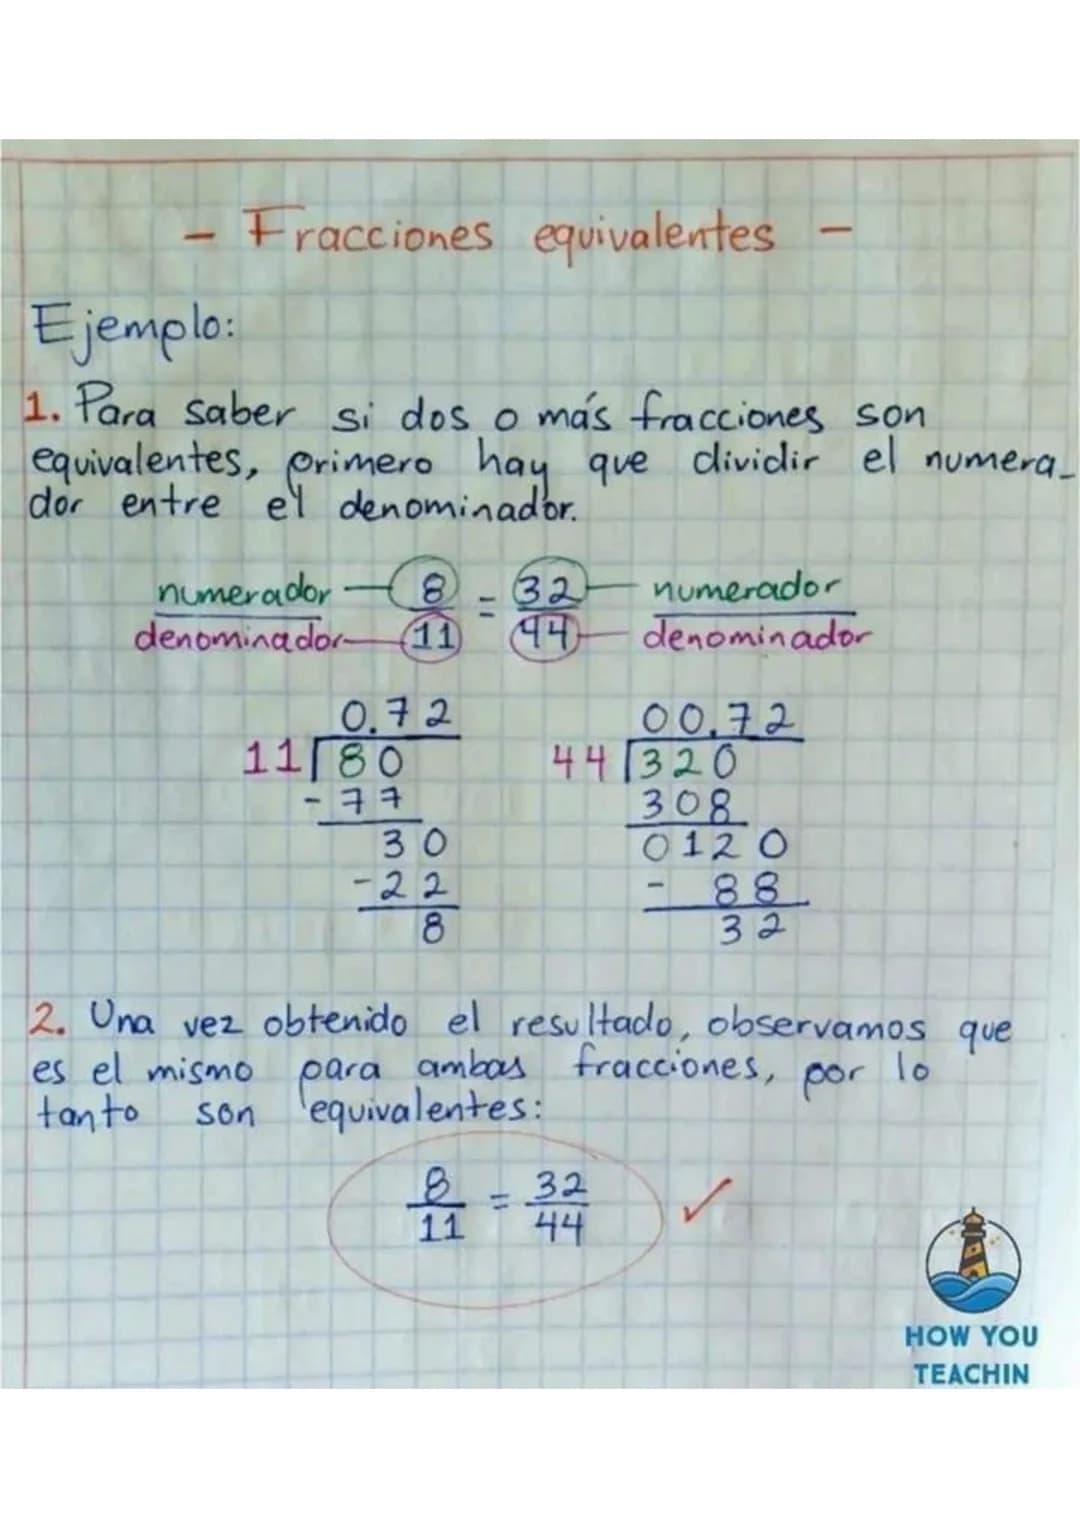 - Fracciones equivalentes -
Ejemplo:
1. Para saber si dos o más fracciones son
equivalentes, primero hay que dividir el numera_
dor entre el denominador.
numerador 8 = 32 numerador
denominador 11 44 denominador
0.72 00.72
11 80 44 320
- 77 308
30 0120
-22 - 88
8 32
2. Una vez obtenido el resultado, observamos que
es el mismo para ambas fracciones, por lo
tanto son equivalentes:
8 = 32 ✓
11 44
HOW YOU
TEACHIN